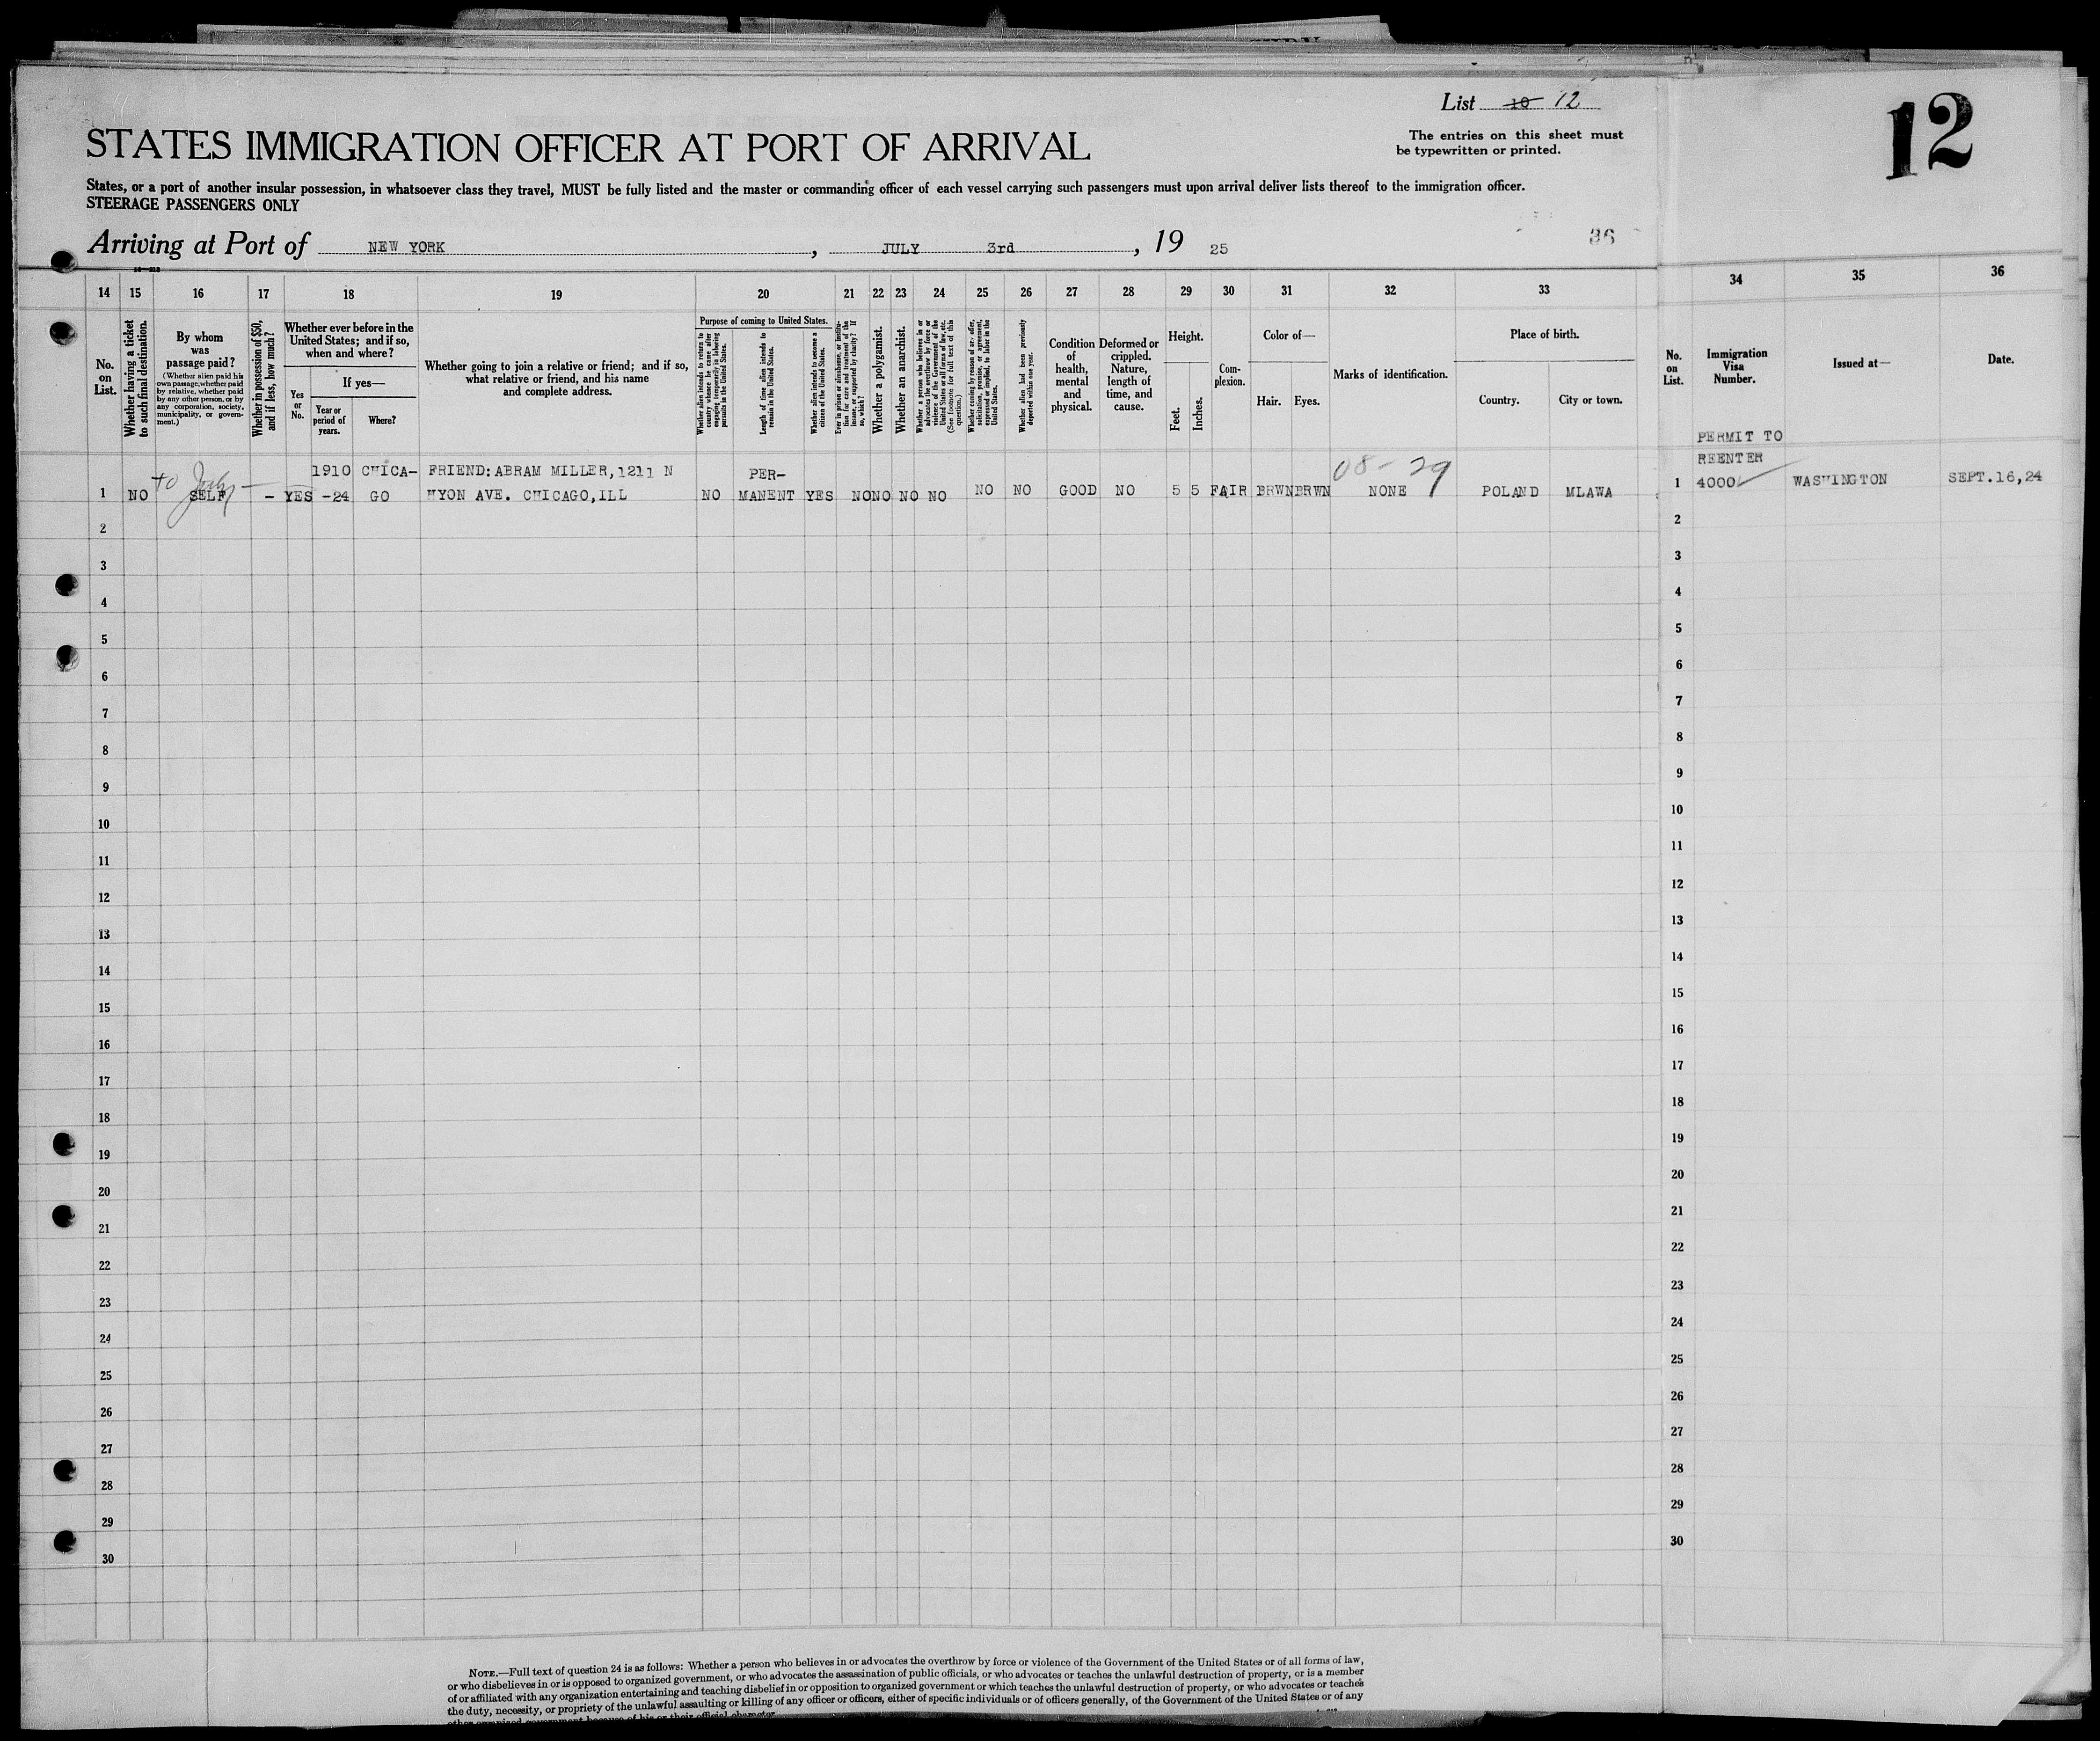 List 10 12
12
The entries on this sheet must
be typewritten or printed.
STATES IMMIGRATION OFFICER AT PORT OF ARRIVAL
States, or a port of another insular possession, in whatsoever class they travel, MUST be fully listed and the master or commanding officer of each vessel carrying such passengers must upon arrival deliver lists thereof to the immigration officer.
STEERAGE PASSENGERS ONLY
Arriving at Port of NEW YORK, JULY 3rd, 19 25
36
14 15 16 17 18 19 20 21 22 23 24 25 26 27 28 29 30 31 32 33 34 35 36
No. on List.
Whether having a ticket to such final destination.
By whom was passage paid?
(Whether alien paid his own passage, whether paid by relative, whether paid by any other person, or by any corporation, society, municipality, or government.)
Whether in possession of $50, and if less, how much?
Whether ever before in the United States; and if so, when and where?
Yes or No.
If yes—
Year or period of years.
Where?
Whether going to join a relative or friend; and if so, what relative or friend, and his name and complete address.
Purpose of coming to United States.
Whether alien intends to return to country whence he came after engaging temporarily in laboring pursuits in the United States.
Length of time alien intends to remain in the United States.
Whether alien intends to become a citizen of the United States.
Ever in prison or almshouse, or institution for care and treatment of the insane, or supported by charity? If so, which?
Whether a polygamist.
Whether an anarchist.
Whether a person who believes in or advocates the overthrow by force or violence of the Government of the United States or all forms of law, etc. (See footnote for full text of this question.)
Whether coming by reason of any offer, solicitation, promise, or agreement, expressed or implied, to labor in the United States.
Whether alien had been previously deported within one year.
Condition of health, mental and physical.
Deformed or crippled. Nature, length of time, and cause.
Height.
Feet. Inches.
Complexion.
Color of—
Hair. Eyes.
Marks of identification.
Place of birth.
Country. City or town.
No. on List.
Immigration Visa Number.
Issued at—
Date.
PERMIT TO
REENTER
1910 CHICA- FRIEND: ABRAM MILLER, 1211 N PER- 08-29
1 NO SELF - YES -24 GO HYON AVE. CHICAGO, ILL NO MANENT YES NO NO NO NO NO NO GOOD NO 5 5 FAIR BRWN BRWN NONE POLAND MLAWA 1 4000 WASHINGTON SEPT. 16, 24
2 2
3 3
4 4
5 5
6 6
7 7
8 8
9 9
10 10
11 11
12 12
13 13
14 14
15 15
16 16
17 17
18 18
19 19
20 20
21 21
22 22
23 23
24 24
25 25
26 26
27 27
28 28
29 29
30 30
NOTE.—Full text of question 24 is as follows: Whether a person who believes in or advocates the overthrow by force or violence of the Government of the United States or of all forms of law,
or who disbelieves in or is opposed to organized government, or who advocates the assassination of public officials, or who advocates or teaches the unlawful destruction of property, or is a member
of or affiliated with any organization entertaining and teaching disbelief in or opposition to organized government or which teaches the unlawful destruction of property, or who advocates or teaches
the duty, necessity, or propriety of the unlawful assaulting or killing of any officer or officers, either of specific individuals or of officers generally, of the Government of the United States or of any
other organized government because of his or their official character